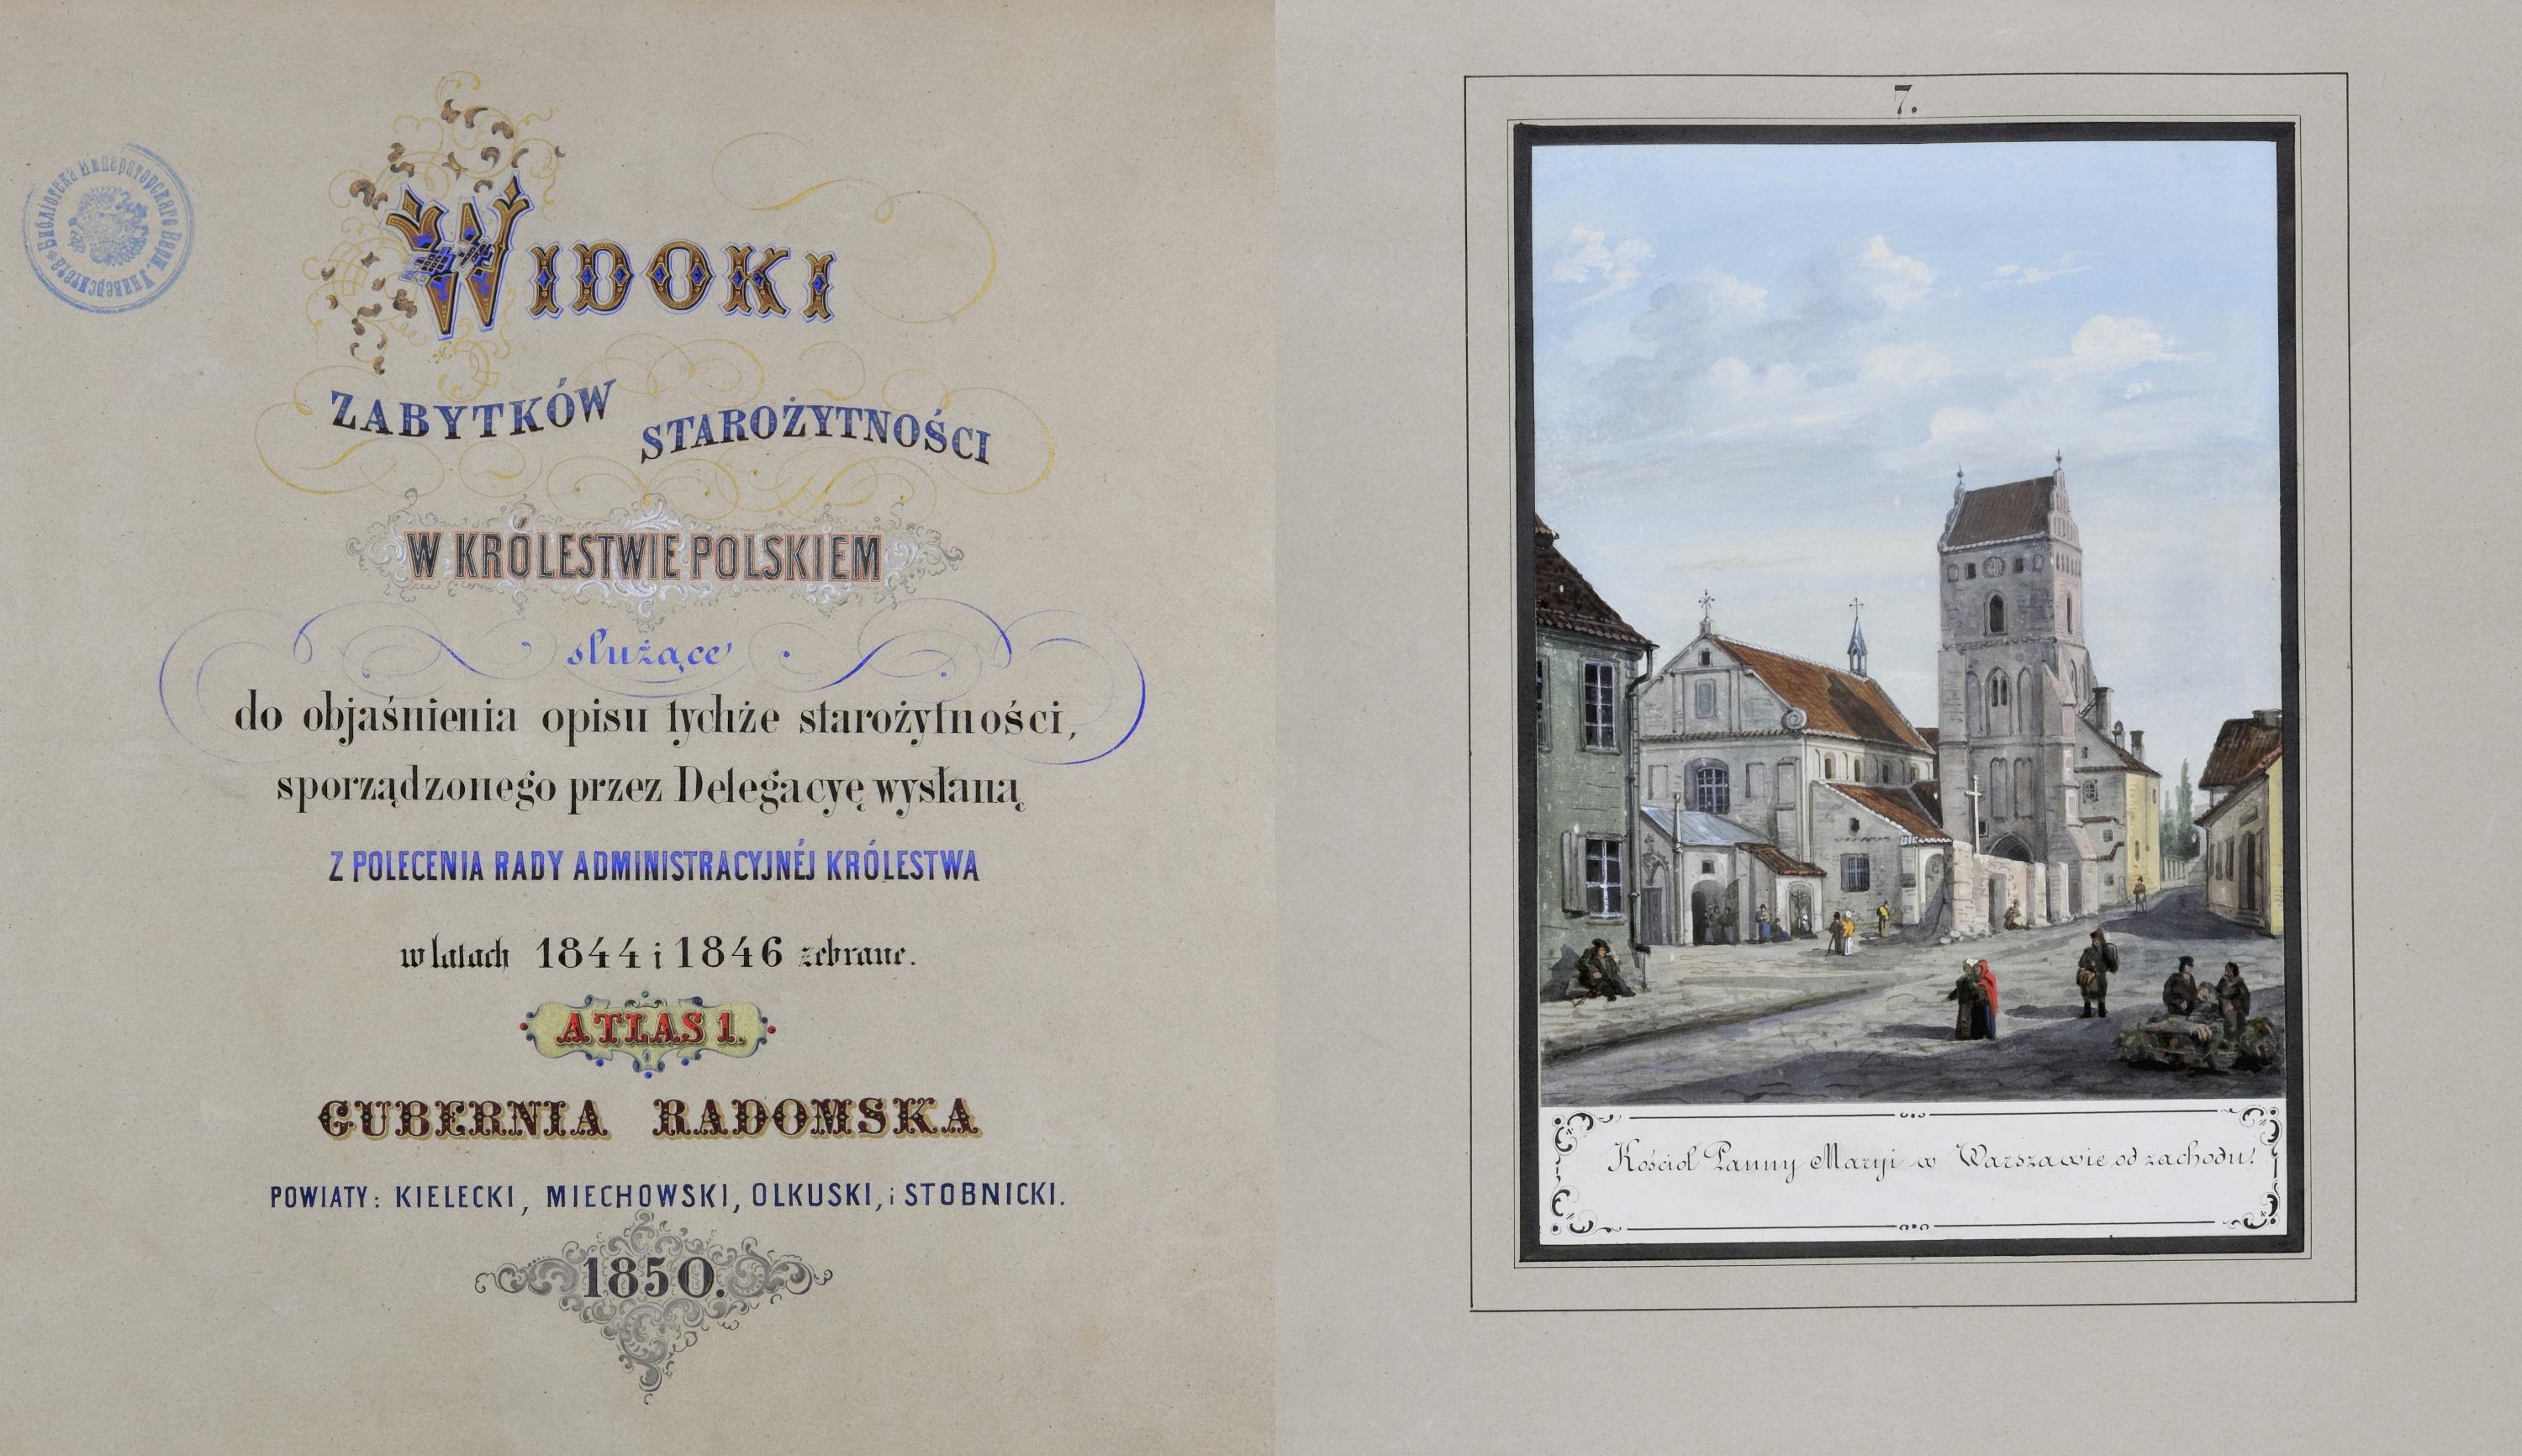 Библіотека Императорскаго Варш. Университета
WIDOKI
ZABYTKÓW STAROŻYTNOŚCI
W KRÓLESTWIE POLSKIEM
służące
do objaśnienia opisu tychże starożytności,
sporządzonego przez Delegacyę wysłaną
Z POLECENIA RADY ADMINISTRACYJNÉJ KRÓLESTWA
w latach 1844 i 1846 zebrane.
ATLAS 1.
GUBERNIA RADOMSKA
POWIATY: KIELECKI, MIECHOWSKI, OLKUSKI, i STOBNICKI.
1850.
7.
Kościoł Panny Maryi w Warszawie od zachodu.